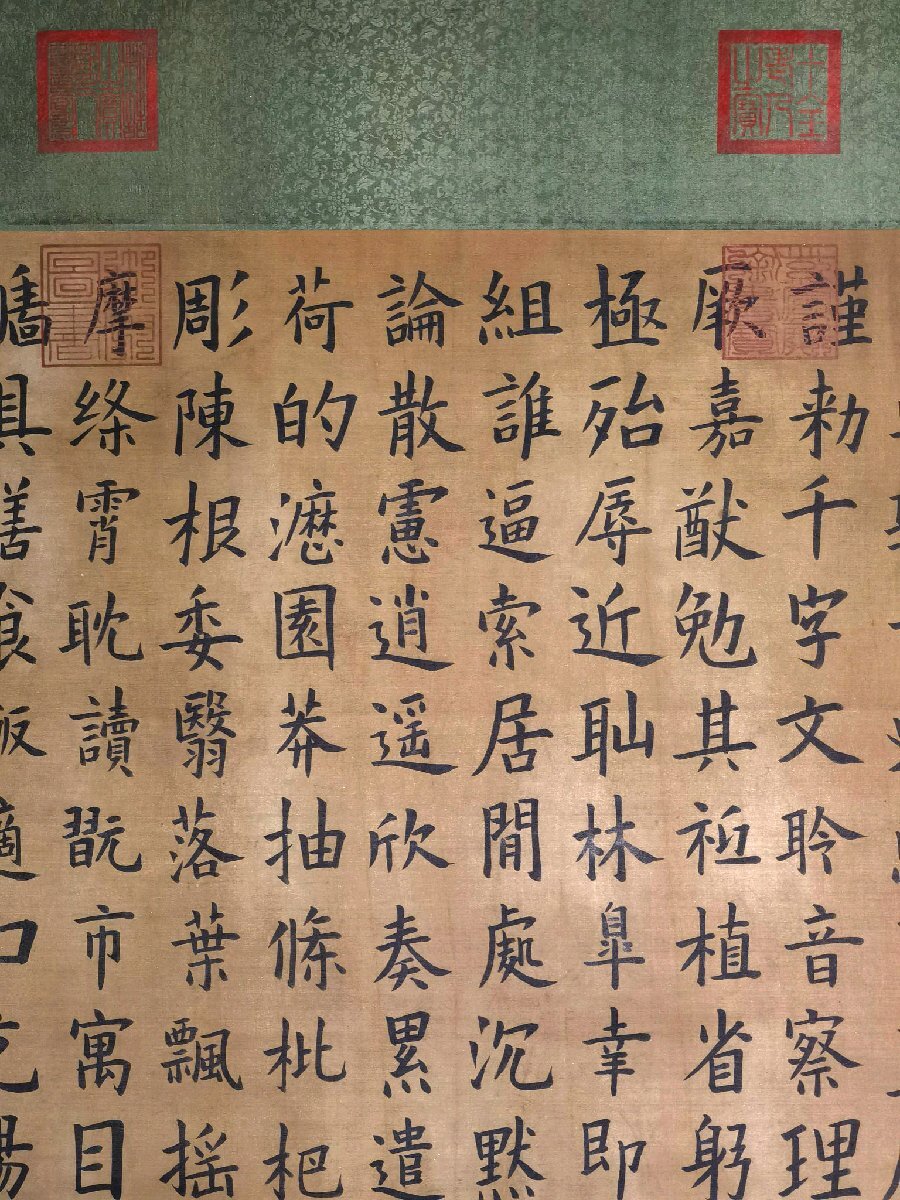 十全老人之寶
謹勅千字文聆音察理
厥嘉猷勉其祗植省躬
極殆辱近耻林皐幸即
組誰逼索居閒處沉默
論散慮逍遥欣奏累遣
荷的園莽抽條枇杷
彫陳根委翳落葉飄摇
摩絳霄耽讀翫市寓目
具膳飯適口充腸